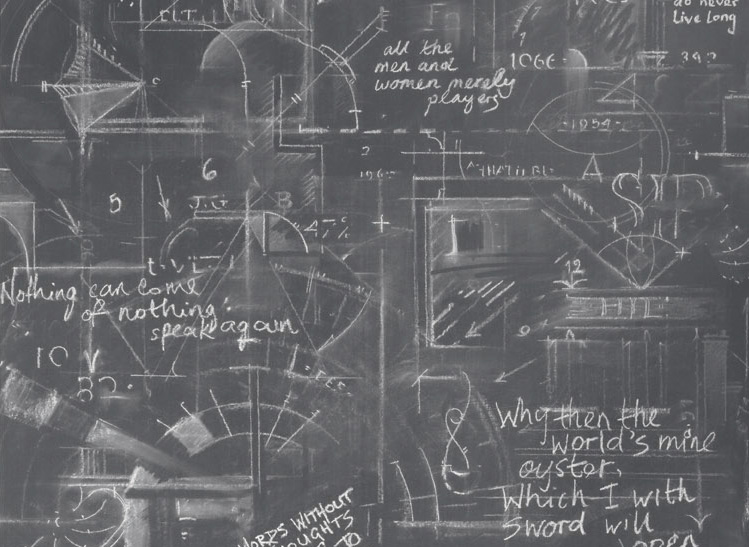 do never
Live long
all the
men and
women merely
players
1066
342
1954
6
5
J.G
B
47%
A
t.V.L
12
Nothing can come
of nothing:
speak again
10
Why then the
world's mine
oyster,
Which I with
sword will
open
WORDS WITHOUT
THOUGHTS
TO